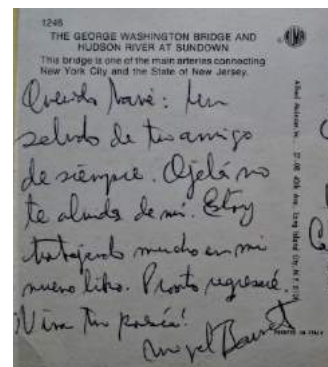 1246
THE GEORGE WASHINGTON BRIDGE AND
HUDSON RIVER AT SUNDOWN
This bridge is one of the main arteries connecting
New York City and the State of New Jersey.
Querido : Un
saludo de tu amigo
de siempre. Ojalá no
te olvides de mí. Estoy
trabajando mucho en mi
nuevo libro. Pronto regresaré.
¡Viva tu poesía!
PRINTED IN ITALY